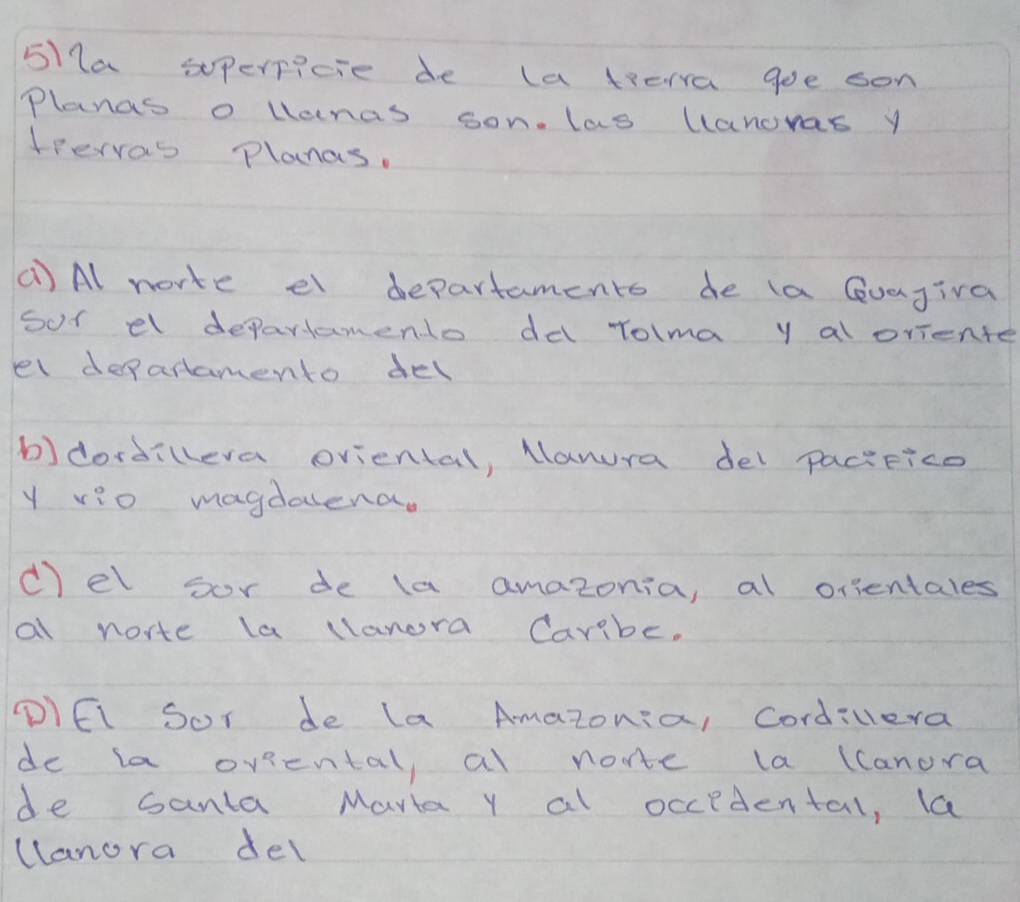 5) La superficie de la tierra que son
Planas o llanas son. las llanuras y
tierras Planas.
a) Al norte el departamento de la Guajira
sur el departamento del Tolma y al oriente
el departamento del
b) Cordillera oriental, llanura del pacifico
y rio magdalena.
C) el sur de la amazonia, al orientales
al norte la llanura Caribe.
D) El Sur de la Amazonia, Cordillera
de la oriental, al norte la llanura
de Santa Marta y al occidental, la
llanura del